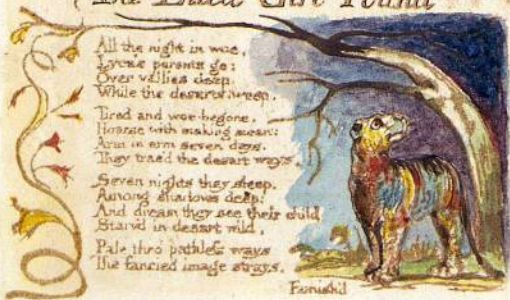 The Little Girl Found
All the night in woe,
Lyca's parents go:
Over vallies deep,
While the desarts weep.
Tired and woe-begone,
Hoarse with making moan:
Arm in arm seven days,
They trac'd the desart ways.
Seven nights they sleep,
Among shadows deep:
And dream they see their child
Starv'd in desart wild.
Pale thro pathless ways
The fancied image strays,
Famish'd